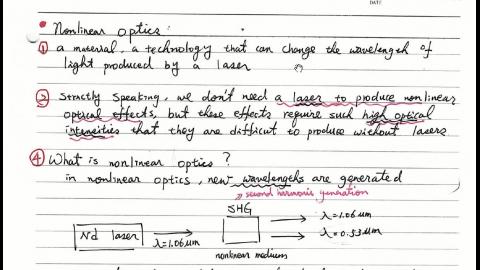 DATE
• Nonlinear optics :
① a material, a technology that can change the wavelength of
light produced by a laser
③ Strictly speaking, we don't need a laser to produce nonlinear
optical effects, but these effects require such high optical
intensities that they are difficult to produce without lasers
④ What is nonlinear optics ?
in nonlinear optics, new wavelengths are generated
second harmonic generation
SHG
Nd laser → λ=1.06μm → λ=1.06μm
→ λ=0.53μm
nonlinear medium